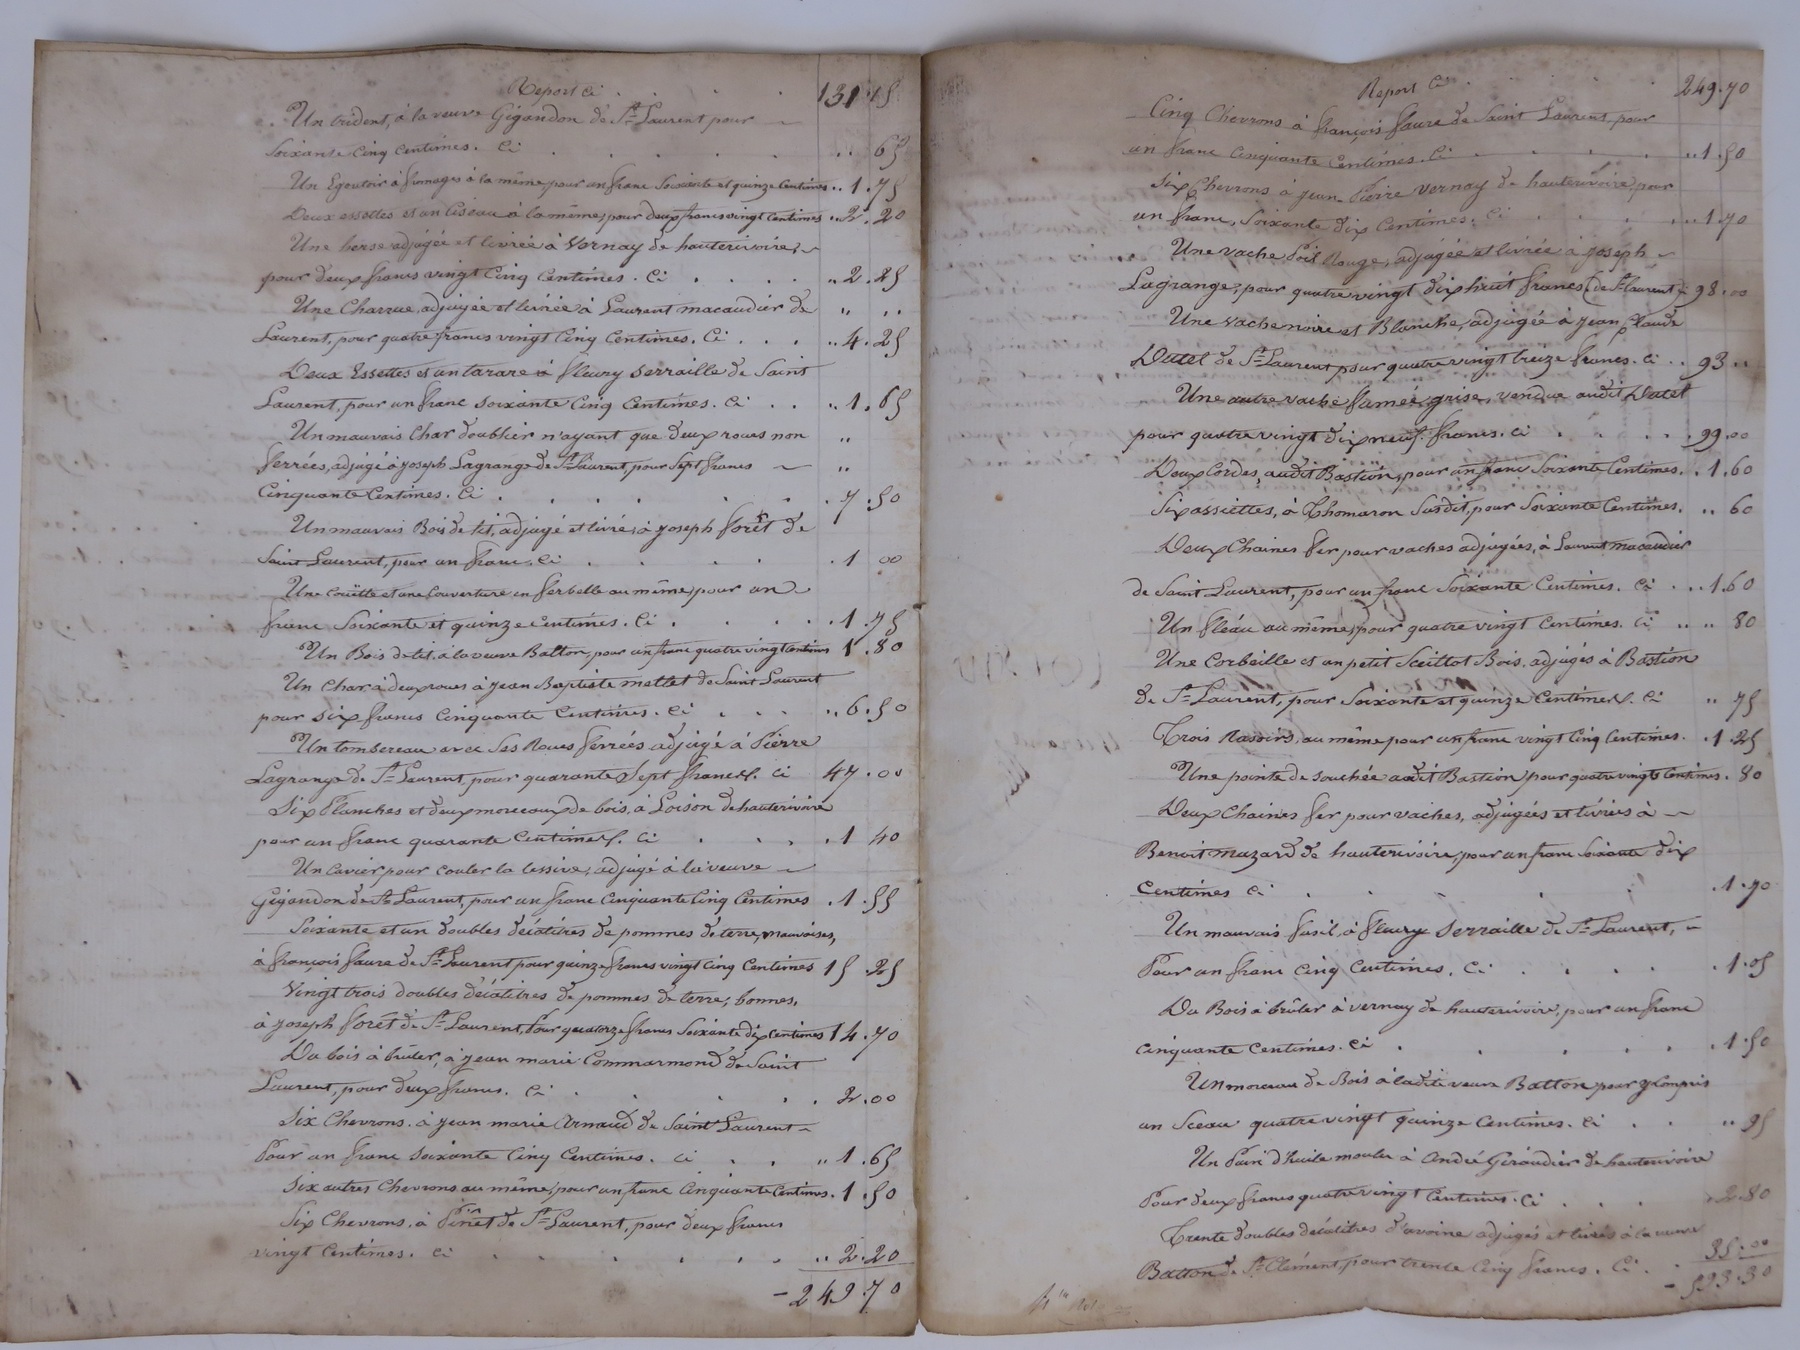 Report ci . . . . 131.15
Un trident, à la veuve Gigandon de St Laurent pour
soixante cinq centimes. Ci . . . . . " 65
Un Egoutoir à fromages à la même pour un franc soixante et quinze centimes " 1.75
Deux essettes et un ciseau à la même, pour deux francs vingt centimes " 2.20
Une herse adjugée et livrée à Vernay de hauterivoire,
pour deux francs vingt cinq centimes. Ci . . . . " 2.25
Une Charrue, adjugée et livrée à Laurent macaudier de " "
Laurent, pour quatre francs vingt cinq centimes. Ci . . . " 4.25
Deux Essettes et un tarare à fleury Serraille de Saint
Laurent, pour un franc soixante cinq centimes. Ci . . " 1.65
Un mauvais Char doublier n'ayant que deux roues non "
ferrées, adjugé à joseph Lagrange de St Laurent, pour sept francs "
Cinquante Centimes. Ci . . . . . . . 7.50
Un mauvais Bois de lit, adjugé et livré, à joseph forêt de
Saint Laurent, pour un franc, Ci . . . . . 1 00
Une Couëtte et une Couverture en serbelle au même, pour un
franc soixante et quinze centimes. Ci . . . . . 1.75
Un Bois de lit, à la veuve Batton, pour un franc quatre vingt Centimes 1.80
Un Char à deux roues à jean Baptiste mettet de Saint Laurent
pour six francs cinquante centimes. Ci . . . " 6.50
Un tombereau avec ses Roues ferrées adjugé à Pierre
Lagrange de St Laurent, pour quarante sept francs. Ci 47.00
Six Planches et deux morceaux de bois, à Loison de hauterivoire
pour un franc quarante Centimes. Ci . . . . 1 40
Un Cuvier pour couler la lessive, adjugé à la veuve
Gigandon de St Laurent, pour un franc Cinquante Cinq Centimes . 1.55
Soixante et un doubles décalitres de pommes de terre, mauvaises,
à françois faure de St Laurent pour quinze francs vingt cinq Centimes 15.25
Vingt trois doubles décalitres de pommes de terre, bonnes,
à joseph forêt de St Laurent, Pour quatorze francs soixante dix centimes 14.70
Du bois à brûler, à jean marie Commarmond de Saint
Laurent, pour deux francs. Ci . . . . . 2.00
Six Chevrons. à jean marie Arnaud de Saint Laurent
Pour un franc soixante Cinq Centimes. Ci . . " 1.65
Six autres Chevrons au même, pour un franc Cinquante Centimes. 1.50
Six Chevrons, à de St Laurent, pour deux francs
vingt Centimes. Ci . . . . . . " 2.20
249.70
Report Ci . . . . 249.70
Cinq Chevrons à françois faure de Saint Laurent, pour
un franc cinquante centimes. Ci . . . . " 1.50
Six Chevrons à jean Pierre Vernay de hauterivoire, pour
un franc, soixante dix Centimes. Ci . . . . " 1.70
Une vache Poil Rouge, adjugée et livrée à joseph
Lagrange, pour quatre vingt dix huit francs (de St Laurent) 98.00
Une vache noire et Blanche, adjugée à jean Claude
Datel de St Laurent pour quatre vingt treize francs. Ci . . 93 "
Une autre vache grise, vendue audit Datel
pour quatre vingt dix neuf francs. Ci . . . . . 99.00
Deux Cordes, audit Bastion, pour un franc Soixante Centimes. . 1.60
Six assiettes, à Thomaron Susdit, pour Soixante Centimes. " 60
Deux Chaines fer pour vaches adjugées, à Laurent macaudier
de Saint Laurent, pour un franc Soixante Centimes. Ci . . . 1.60
Un fléau au même, pour quatre vingt Centimes. Ci " " 80
Une Corbeille et un petit Bois. adjugés à Bastion
de St Laurent, pour soixante et quinze Centimes. Ci " 75
Trois Rasoirs, au même pour un franc vingt cinq Centimes. . 1.25
Une pointe de souchée audit Bastion pour quatre vingts Centimes. 80
Deux Chaines fer pour vaches, adjugées et livrées à
Benoit muzard de hauterivoire, pour un franc soixante dix
centimes Ci . . . . . . 1.70
Un mauvais fusil à fleury Serraille de St Laurent,
Pour un franc cinq centimes. Ci . . . . . 1.05
Du Bois à brûler à vernay de hauterivoire, pour un franc
cinquante centimes. Ci . . . . . . 1.50
Un morceau de Bois à ladite veuve Batton pour y Compris
un Sceau quatre vingt quinze Centimes. Ci . . " 95
Un d'huile à André Giraudier de hauterivoire
Pour deux francs quatre vingt Centimes. Ci . . . . 2.80
Trente doubles décalitres d'avoine adjugés et livrés à la veuve
Batton de St Clément, pour trente cinq francs. Ci . . 35.00
593.30